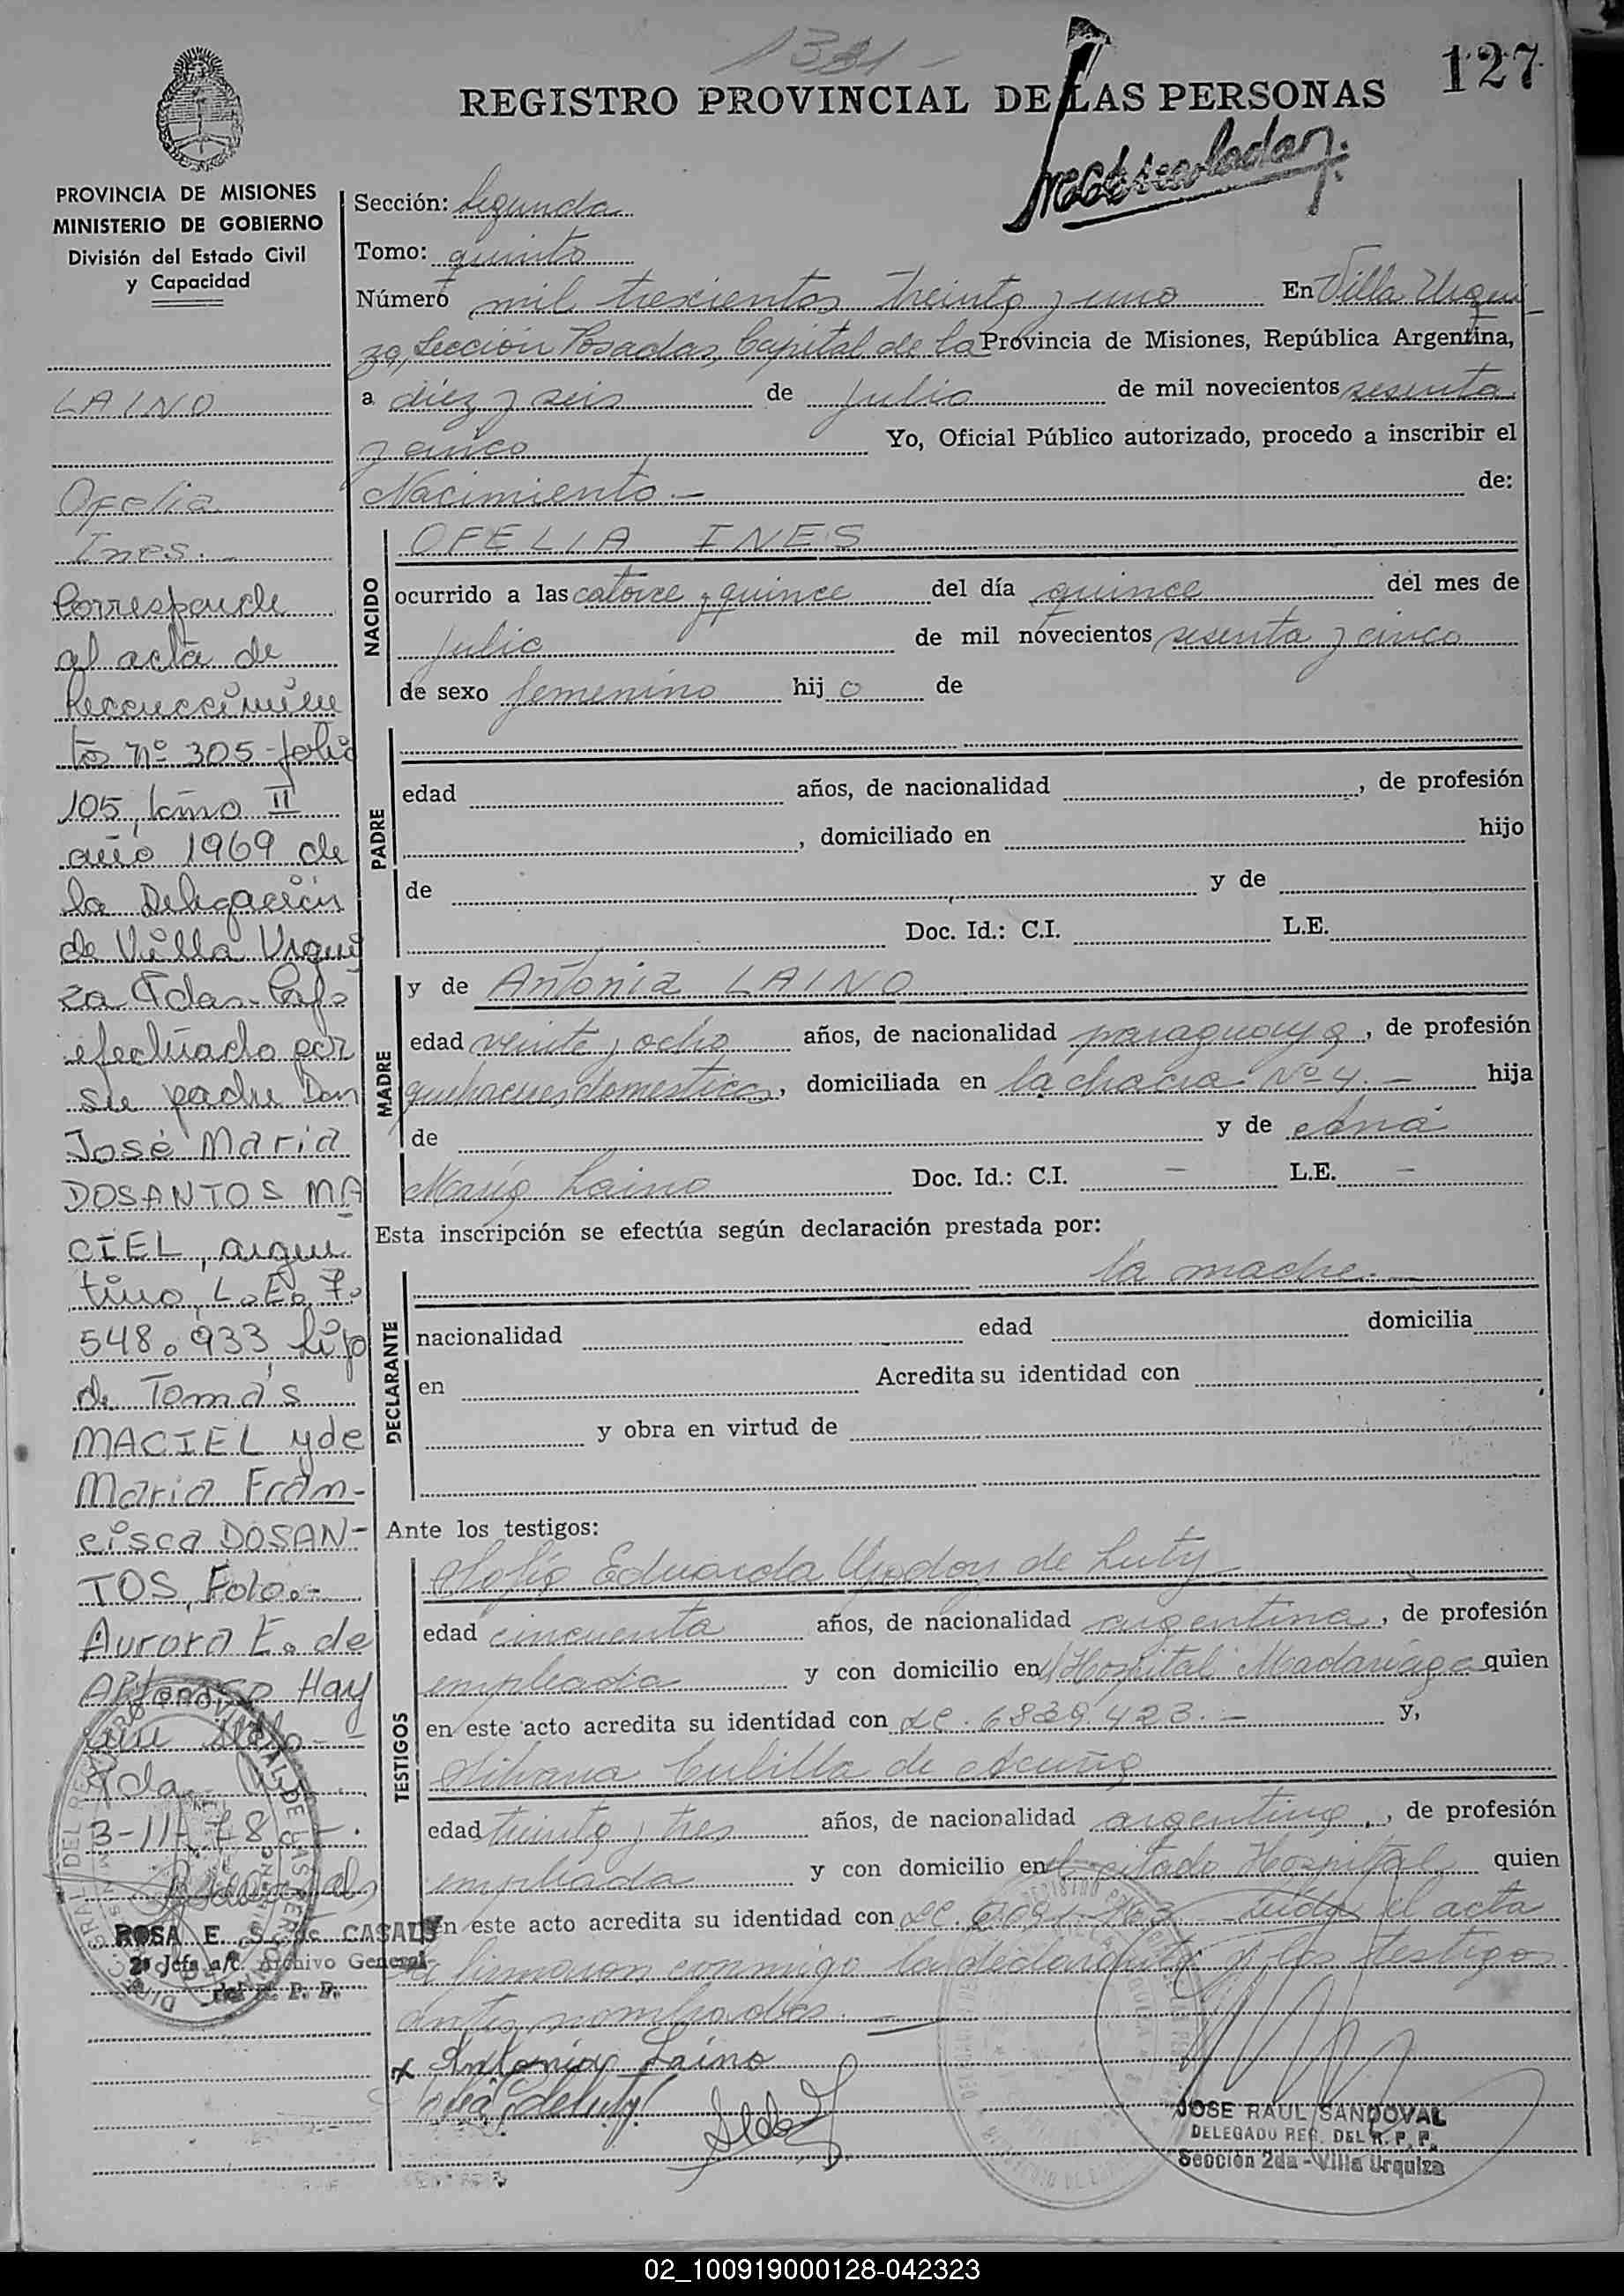 1331 -
127
REGISTRO PROVINCIAL DE LAS PERSONAS
PROVINCIA DE MISIONES
MINISTERIO DE GOBIERNO
División del Estado Civil
y Capacidad
LAINO
Ofelia
Ines.-
Corresponde
al acta de
Reconocimien
to nº 305-folio
105, tomo II
año 1969 de
la Delegación
de Villa Urqui
za Pdas-
efectuado por
su padre Don
José Maria
DOSANTOS MA
CIEL, argen
tino, L.E. 7.
548.933 hijo
de Tomás
MACIEL y de
Maria Fran-
cisca DOSAN-
TOS, Fdo.-
Aurora E. de
Hay
un sello-
Pdas.
3-11-78-.
ROSA E. S. de CASALS
2ª Jefa a/c. Archivo General
del R. P. P.
Sección: Segunda
Tomo: quinto
Número mil trescientos treinta y uno En Villa Urqui
za, Sección Posadas, Capital de la Provincia de Misiones, República Argentina,
a diez y seis de Julio de mil novecientos sesenta
y cinco Yo, Oficial Público autorizado, procedo a inscribir el
Nacimiento.- de:
NACIDO
OFELIA INES
ocurrido a las catorce y quince del día quince del mes de
Julio de mil novecientos sesenta y cinco
de sexo femenino hijo de
PADRE
edad años, de nacionalidad , de profesión
, domiciliado en hijo
de y de
Doc. Id.: C.I. L.E.
MADRE
y de Antonia LAINO
edad veinte y ocho años, de nacionalidad paraguaya, de profesión
quehaceres domesticos, domiciliada en la chacra Nº 4.- hija
de y de Ana
María Laino Doc. Id.: C.I. - L.E. -
Esta inscripción se efectúa según declaración prestada por:
DECLARANTE
la madre.-
nacionalidad edad domicilia
en Acredita su identidad con
y obra en virtud de
Ante los testigos:
TESTIGOS
Sofía Eduarda Godoy de Luty
edad cincuenta años, de nacionalidad argentina, de profesión
empleada y con domicilio en Hospital Madariaga quien
en este acto acredita su identidad con LC. 6839.423.- y,
Silvana Cubilla de Acuña
edad treinta y tres años, de nacionalidad argentina, de profesión
empleada y con domicilio en el citado Hospital quien
en este acto acredita su identidad con LC. Leída el acta
la firmaron conmigo la declarante y los testigos
antes nombrados.-
x Antonia Laino
de Luty
JOSE RAUL SANDOVAL
DELEGADO REG. DEL R. P. P.
Sección 2da - Villa Urquiza
02_100919000128-042323